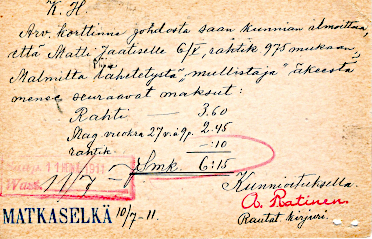 K. H.
Arv. korttinne johdosta saan kunnian ilmoittaa,
että Matti Jaatiselle 6/V, rahtik 975 mukaan,
Malmilta lähetetystä "mullistaja" äkeestä
menee seuraavat maksut:
Rahti — 3.60
Mag vuokra 27 v. à 9 p. 2.45
rahtik —:10
Smk. 6:15
11/7
Kunnioituksella
A. Ratinen
Rautat. kirjuri.
MATKASELKÄ 10/7-11.